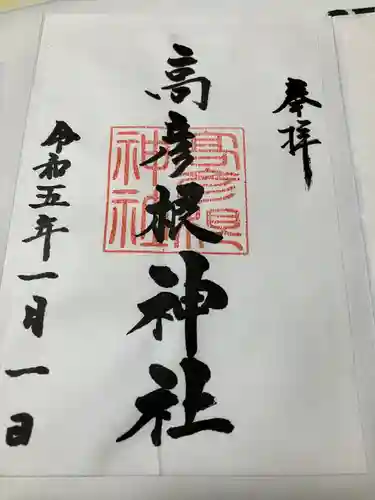 奉拝
高彦根神社
高彦根
神社
令和五年一月一日